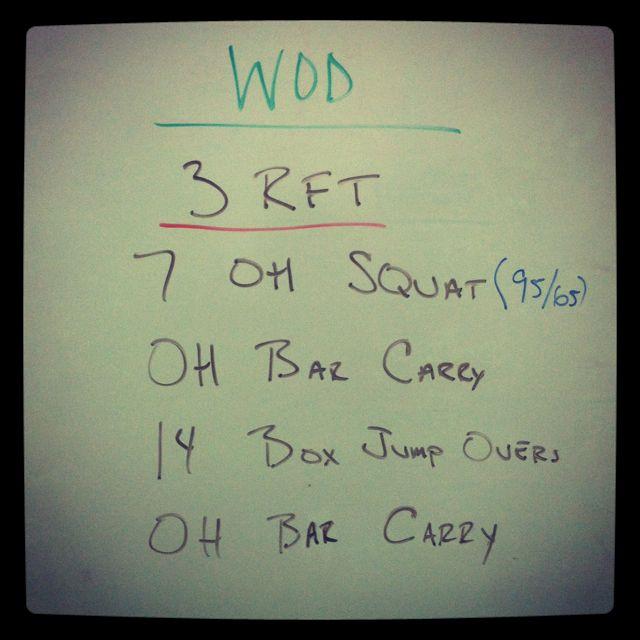 WOD
3 RFT
7 OH SQUAT (95/65)
OH BAR CARRY
14 BOX JUMP OVERS
OH BAR CARRY